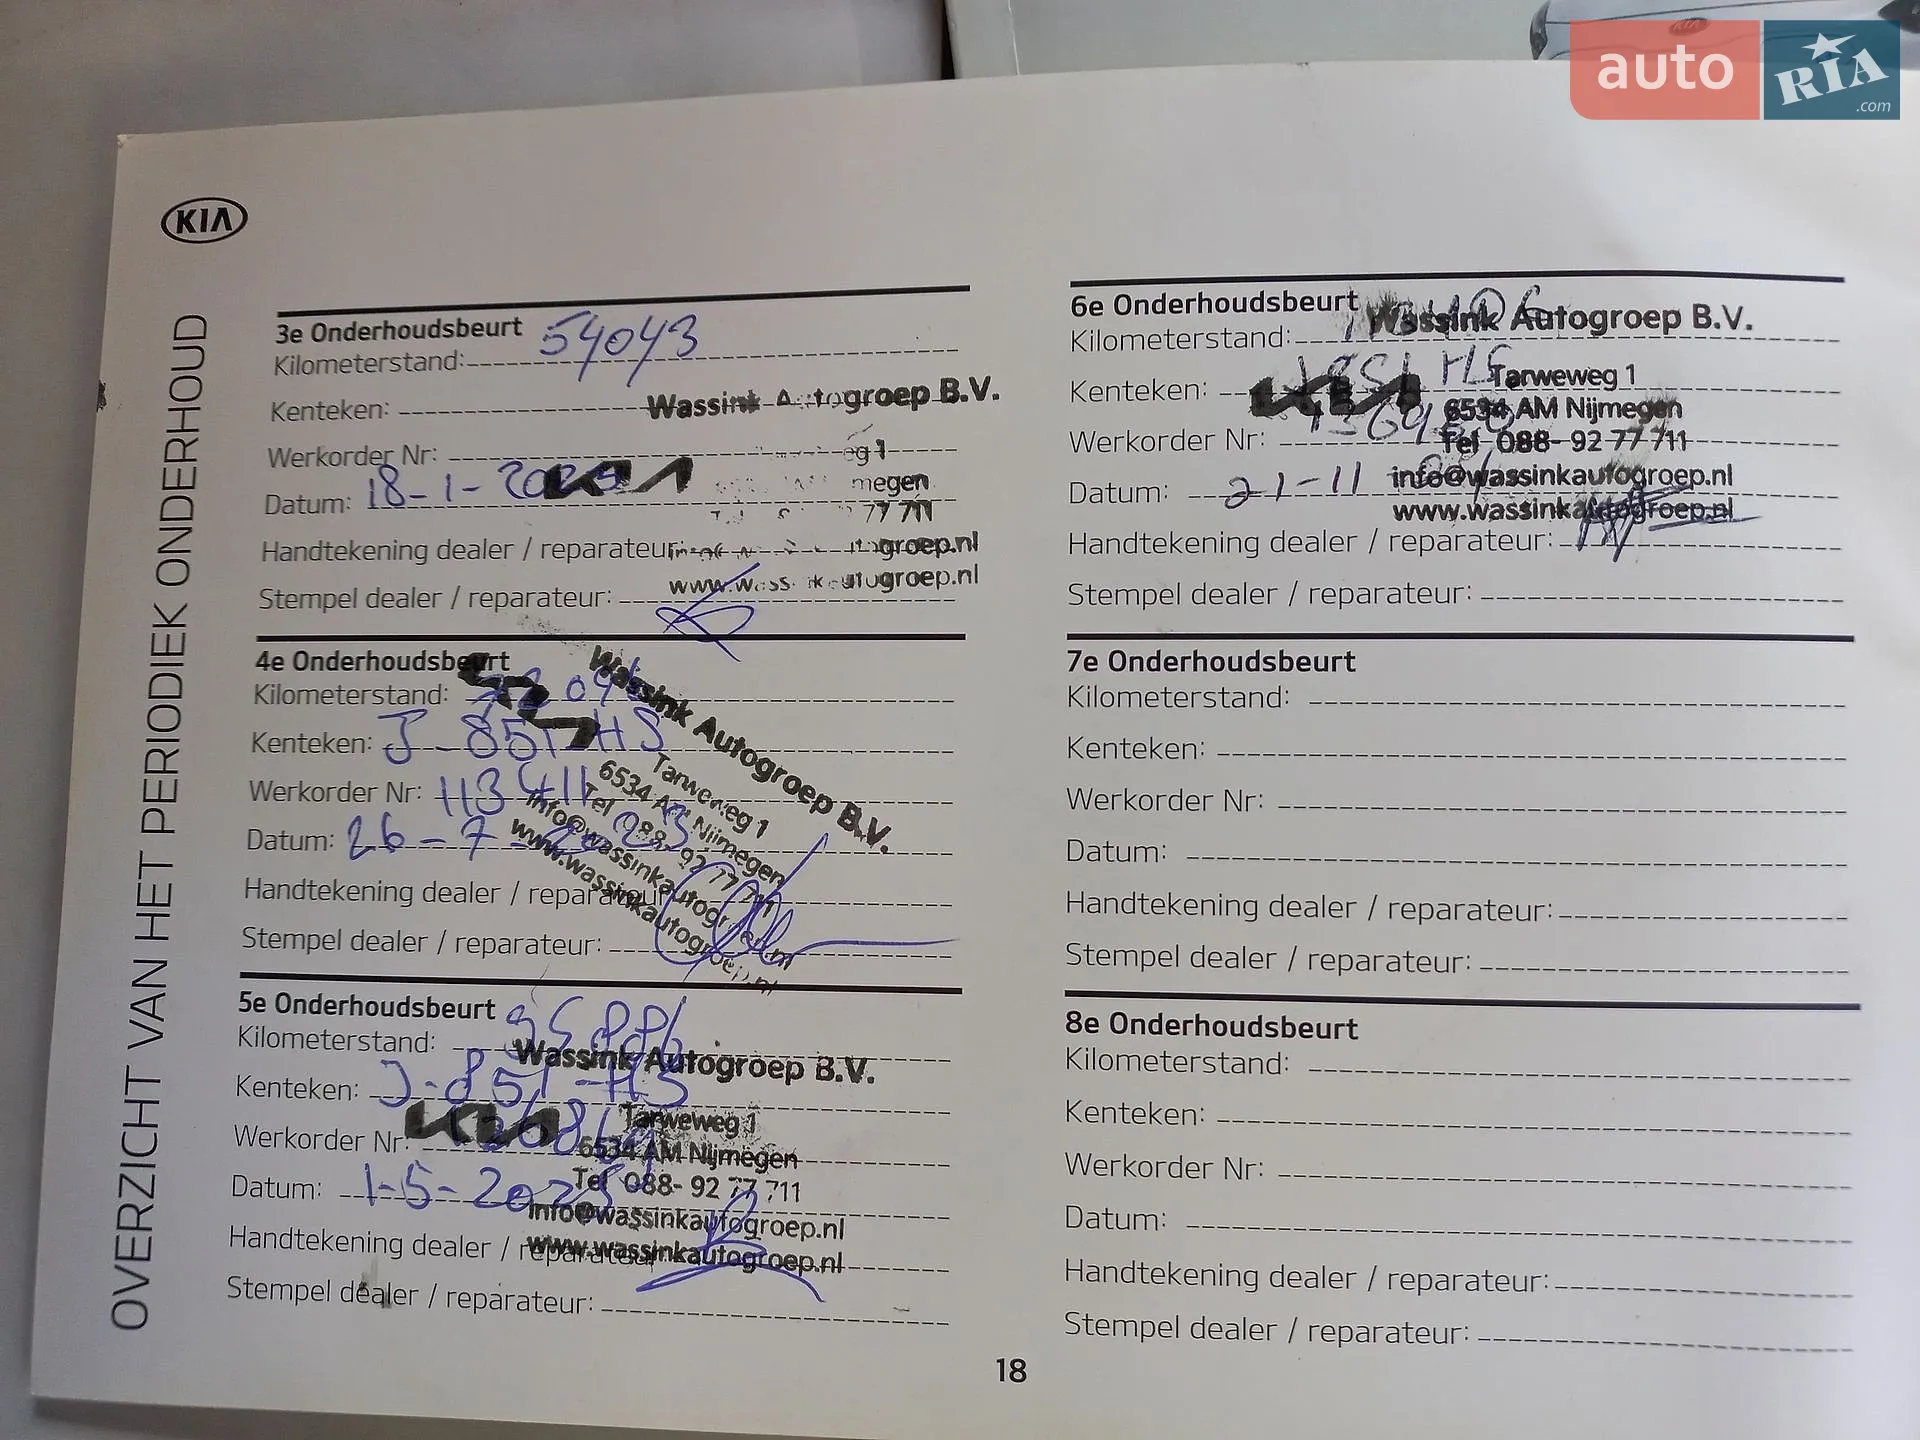 auto RIA.com
KIA
OVERZICHT VAN HET PERIODIEK ONDERHOUD
3e Onderhoudsbeurt
Kilometerstand: 54043
Kenteken:
Wassink Autogroep B.V.
Werkorder Nr:
Datum: 18-1-
Handtekening dealer / reparateur:
Stempel dealer / reparateur:
4e Onderhoudsbeurt
Kilometerstand:
Kenteken: J-851-HS
Werkorder Nr:
Datum: 26-7-2023
Handtekening dealer / reparateur:
Stempel dealer / reparateur:
Wassink Autogroep B.V.
Tarweweg 1
6534 AM Nijmegen
Tel 088-92 77 711
info@wassinkautogroep.nl
www.wassinkautogroep.nl
5e Onderhoudsbeurt
Kilometerstand:
Wassink Autogroep B.V.
Kenteken: J-851-HS
KIA
Tarweweg 1
Werkorder Nr:
6534 AM Nijmegen
Datum: 1-5-202
Tel 088-92 77 711
info@wassinkautogroep.nl
Handtekening dealer / reparateur:
www.wassinkautogroep.nl
Stempel dealer / reparateur:
6e Onderhoudsbeurt
Wassink Autogroep B.V.
Kilometerstand:
Tarweweg 1
Kenteken:
6534 AM Nijmegen
Werkorder Nr:
Tel 088-92 77 711
info@wassinkautogroep.nl
Datum: 21-11
www.wassinkautogroep.nl
Handtekening dealer / reparateur:
Stempel dealer / reparateur:
7e Onderhoudsbeurt
Kilometerstand:
Kenteken:
Werkorder Nr:
Datum:
Handtekening dealer / reparateur:
Stempel dealer / reparateur:
8e Onderhoudsbeurt
Kilometerstand:
Kenteken:
Werkorder Nr:
Datum:
Handtekening dealer / reparateur:
Stempel dealer / reparateur:
18